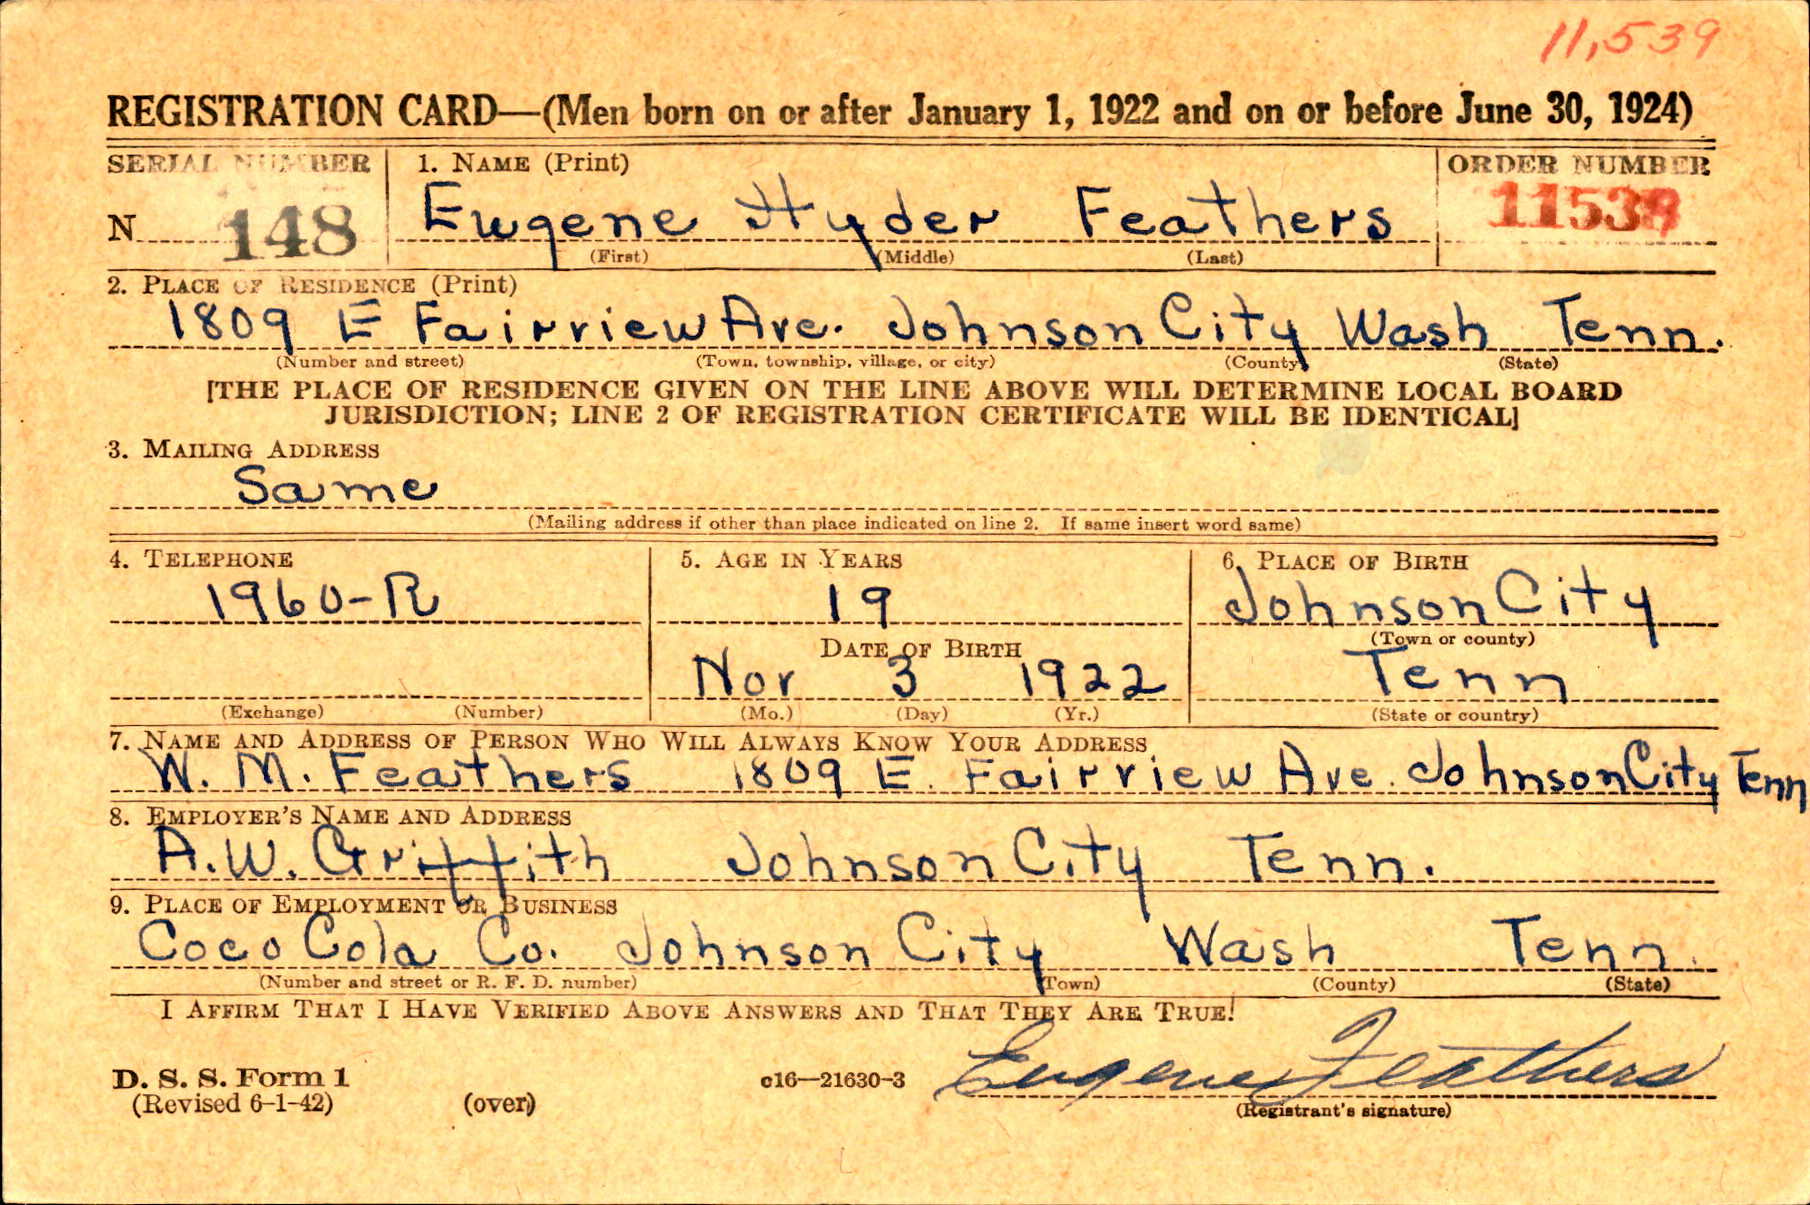 11,539
REGISTRATION CARD—(Men born on or after January 1, 1922 and on or before June 30, 1924)
SERIAL NUMBER 1. NAME (Print) ORDER NUMBER
N 148 Eugene Hyder Feathers 11539
(First) (Middle) (Last)
2. PLACE OF RESIDENCE (Print)
1809 E Fairview Ave. Johnson City Wash Tenn.
(Number and street) (Town, township, village, or city) (County) (State)
[THE PLACE OF RESIDENCE GIVEN ON THE LINE ABOVE WILL DETERMINE LOCAL BOARD
JURISDICTION; LINE 2 OF REGISTRATION CERTIFICATE WILL BE IDENTICAL]
3. MAILING ADDRESS
Same
(Mailing address if other than place indicated on line 2. If same insert word same)
4. TELEPHONE 5. AGE IN YEARS 6. PLACE OF BIRTH
1960-R 19 Johnson City
DATE OF BIRTH (Town or county)
Nov 3 1922 Tenn
(Exchange) (Number) (Mo.) (Day) (Yr.) (State or country)
7. NAME AND ADDRESS OF PERSON WHO WILL ALWAYS KNOW YOUR ADDRESS
W. M. Feathers 1809 E. Fairview Ave. Johnson City Tenn
8. EMPLOYER'S NAME AND ADDRESS
A.W. Griffith Johnson City Tenn.
9. PLACE OF EMPLOYMENT OR BUSINESS
Coco Cola Co. Johnson City Wash Tenn.
(Number and street or R. F. D. number) (Town) (County) (State)
I AFFIRM THAT I HAVE VERIFIED ABOVE ANSWERS AND THAT THEY ARE TRUE!
Eugene Feathers
D. S. S. Form 1 c16—21630-3
(Revised 6-1-42) (over) (Registrant's signature)